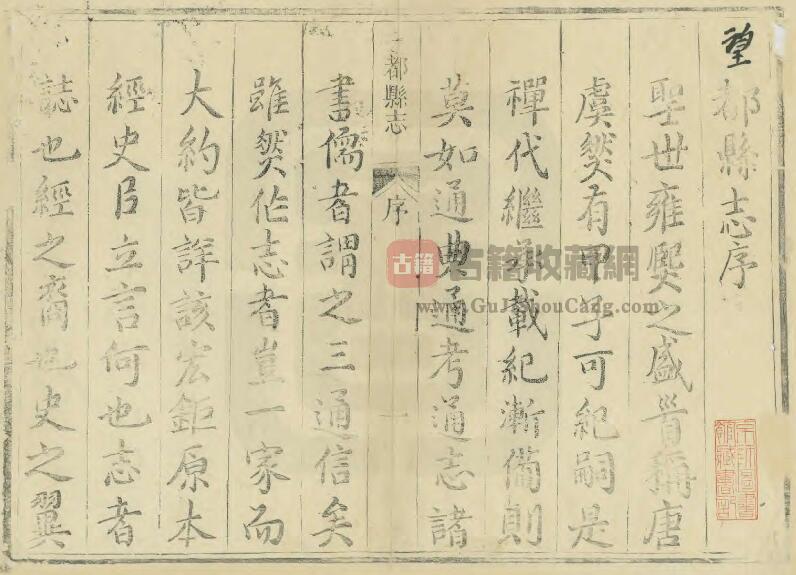 望都縣志序
聖世雍熙之盛首稱唐
虞然有甲子可紀嗣是
禪代繼承載紀漸備則
莫如通典通考通志諸
都縣志 序 一
書儒者謂之三通信矣
雖然作志者豈一家而
大約皆詳該宏鉅原本
經史臣立言何也志者
誌也經之裔也史之翼
古籍 古籍收藏網
www.GuJiShouCang.com